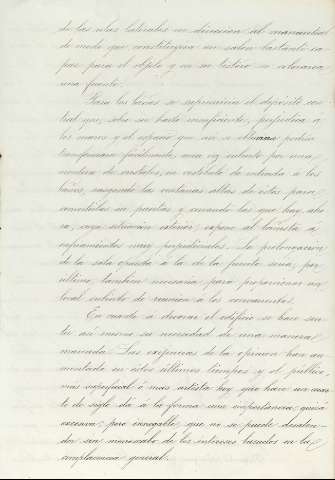 de las salas laterales en direccion al manantial
de modo que constituyera un salon bastante ca
paz para el objeto y en su testero se colocaria
una fuente.
Para los baños se suprimiria el depósito cen
tral que, sobre ser harto insuficiente, perjudica á
los muros y el espacio que así se obtuviera podria
transformarse facilmente, una vez cubierto por una
montera de cristales, en vestíbulo de entrada á los
baños, rasgando las ventanas altas de estos para
convertirlas en puertas y cerrando las que hay aho
ra, cuya situacion exterior, expone al bañista á
enfriamientos muy perjudiciales. La prolongacion
de la sala opuesta á la de la fuente seria, por
último tambien necesaria para proporcionar un
local cubierto de reunion á los concurrentes.
En cuanto á decorar el edificio se hace sen
tir así mismo su necesidad de una manera
marcada. Las exigencias de la opinion han au
mentado en estos últimos tiempos y el público,
mas superficial ó mas artista hoy que hace un cuar
to de siglo dá á la forma una importancia, quizá
excesiva; pero innegable, que no se puede desaten
der sin menoscabo de los intereses basados en la
complacencia general.